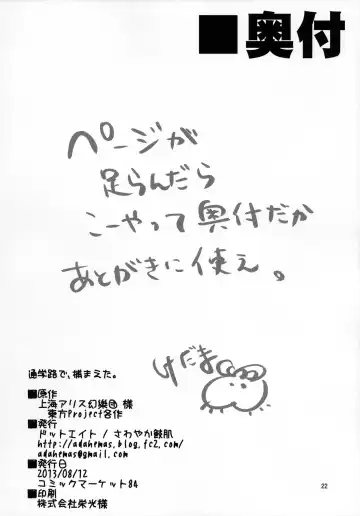 ■奥付
ページが
足らんだら
こーやって奥付だか
あとがきに使え。
けだま
通学路で、捕まえた。
■原作
上海アリス幻樂団 様
東方Project各作
■発行
ドットエイト / さわやか鮫肌
http://adahrmas.blog.fc2.com/
adahrmas@gmail.com
■発行日
2013/08/12
コミックマーケット84
■印刷
株式会社栄光様
22